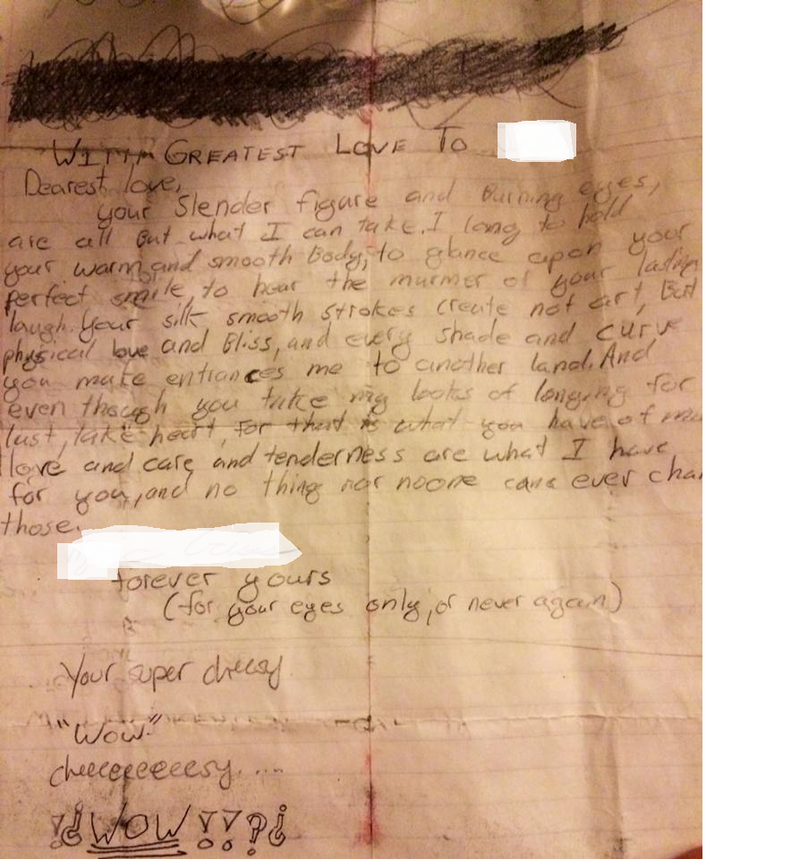 WITH GREATEST LOVE TO
Dearest love,
your slender figure and Burning eyes,
are all But what I can take. I long to hold
your warm and smooth Body, to glance upon your
perfect smile, to hear the murmer of your lasting
laugh. Your silk smooth strokes create not art, But
physical love and Bliss, and every shade and curve
you make entrances me to another land. And
even though you take my looks of longing for
lust, take heart, for that is what you have of me
love and care and tenderness are what I have
for you, and no thing nor noone can ever
those.
forever yours
(for your eyes only, or never again)
Your super cheesy
"Wow"
cheeeeeeeesy....
¡¿WOW!!?¿